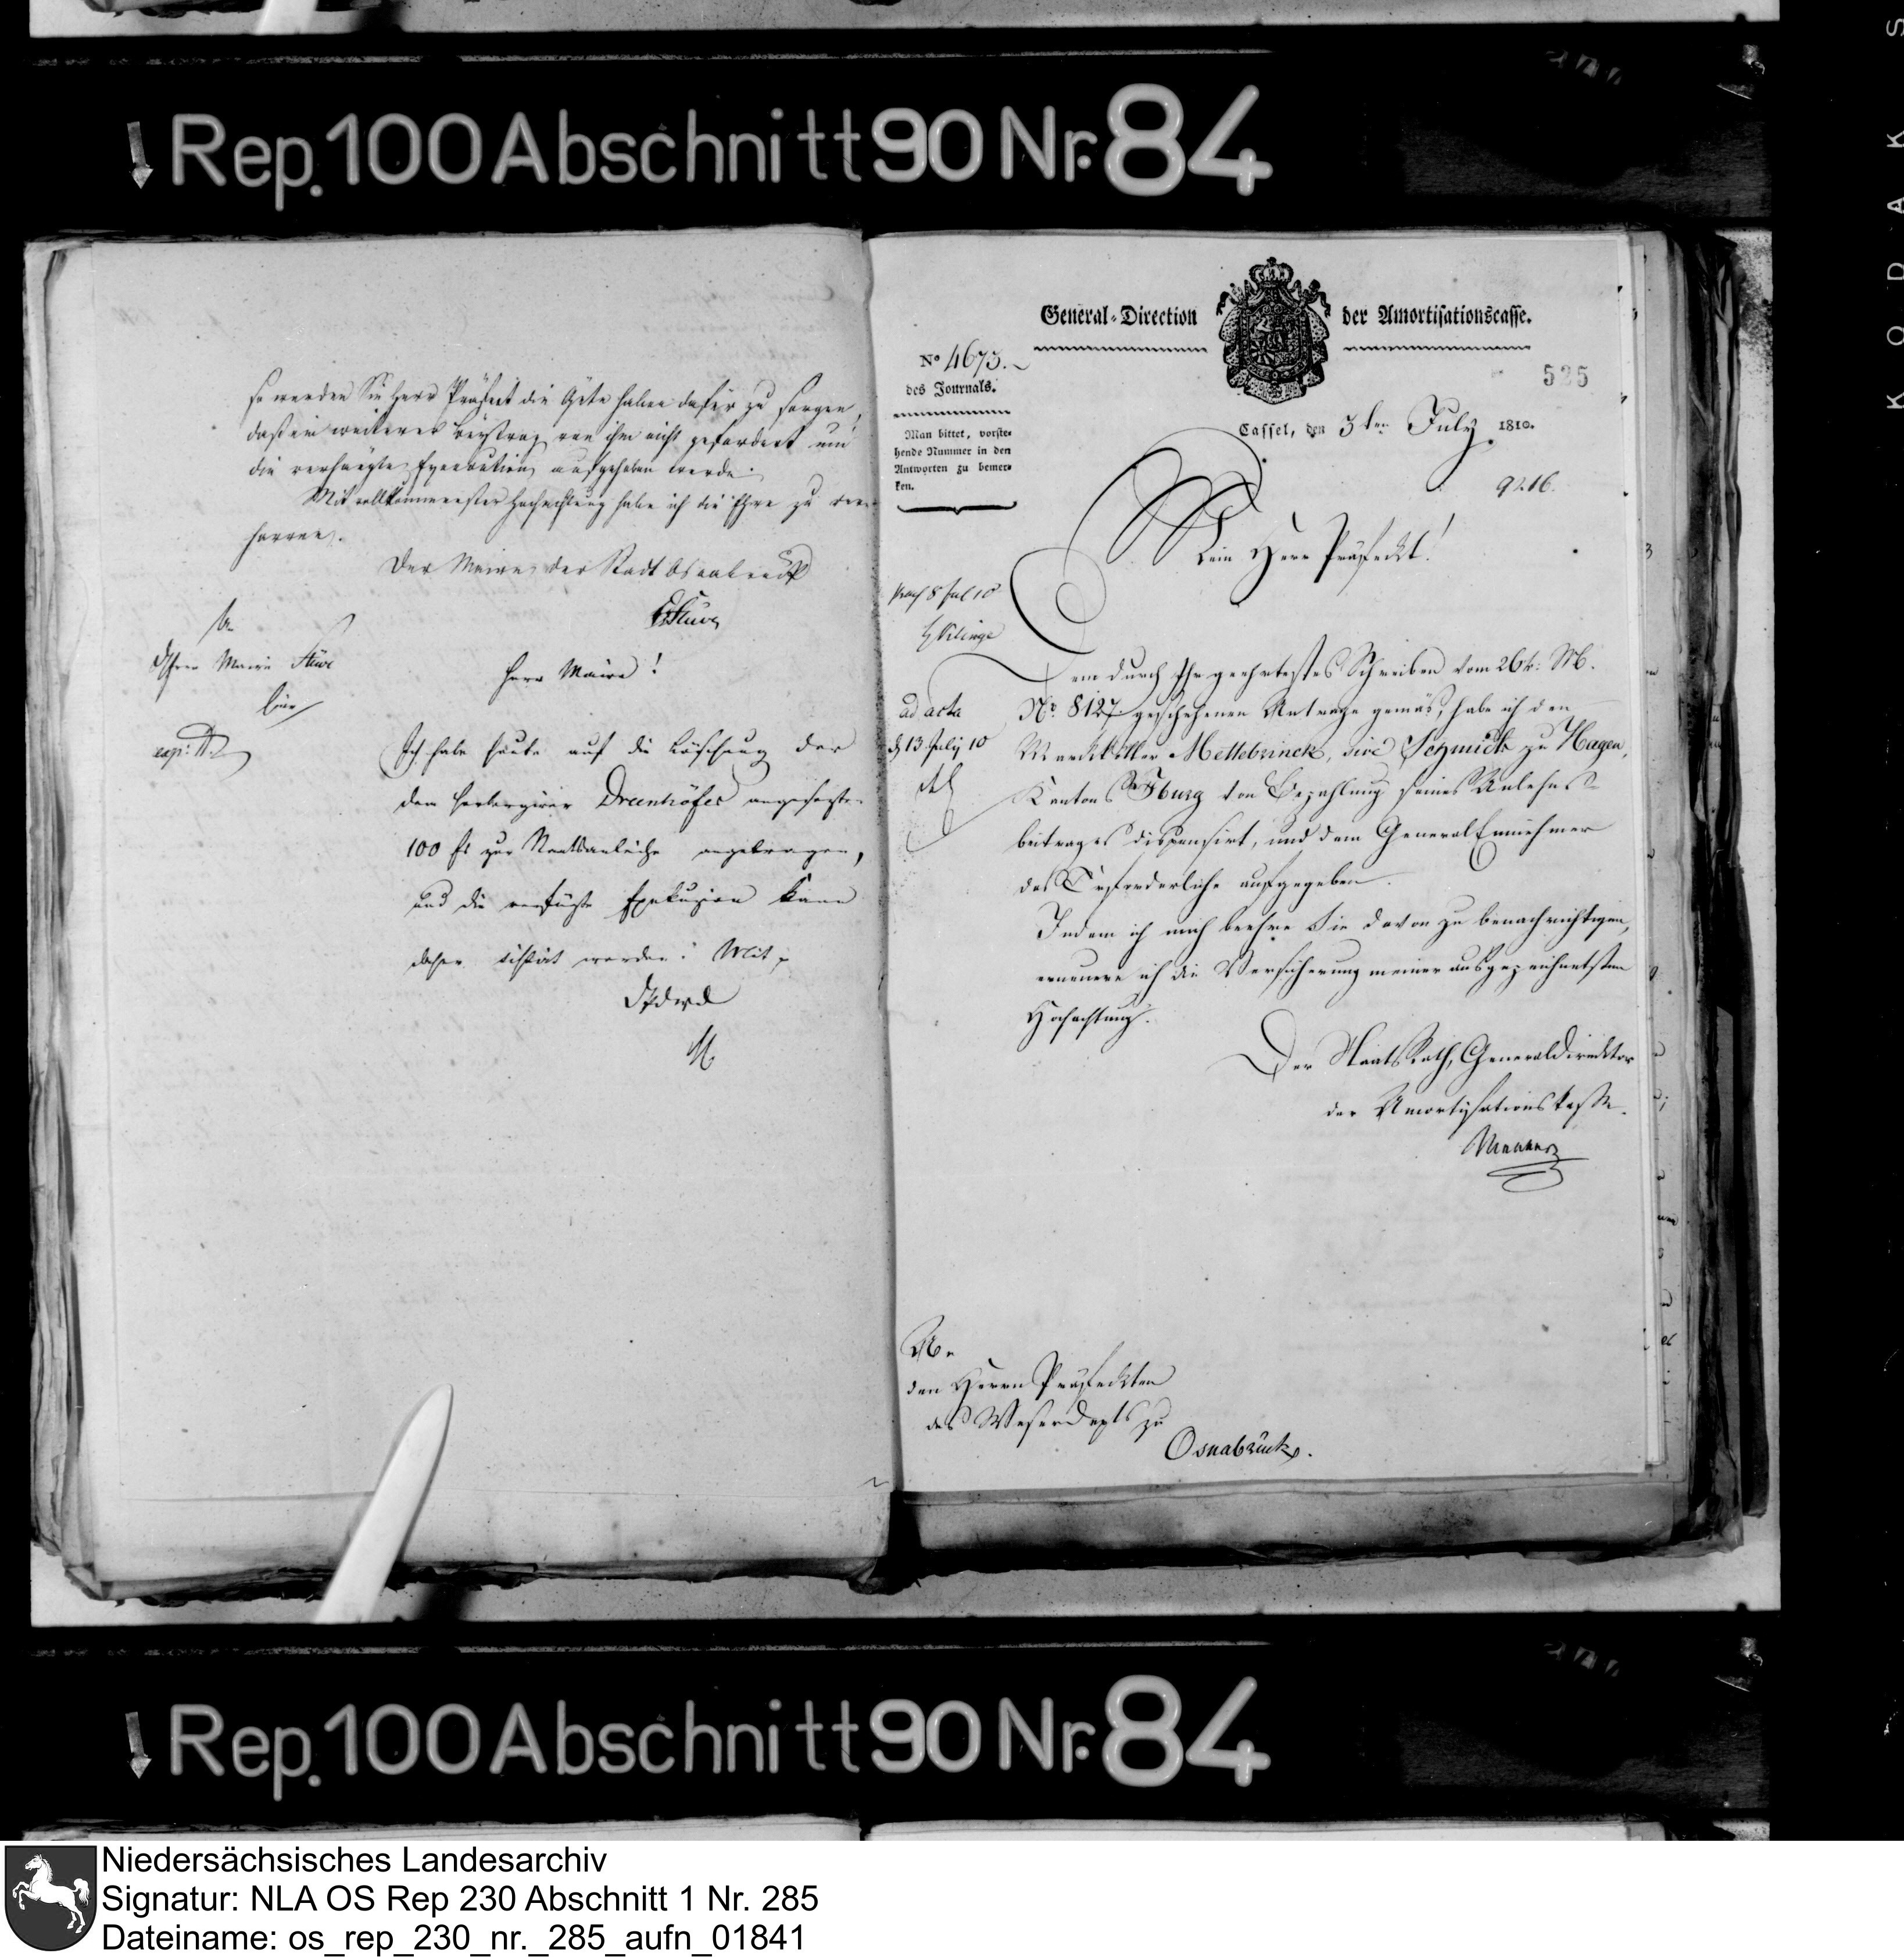 Rep. 100 Abschnitt 90 Nr. 84
so werden Sie Herr Präfect die Güte haben dafür zu sorgen,
daß ein weiterer Beytrag von ihm nicht gefordert und
die verhängte Execution aufgehoben werde.
Mit vollkommenster Hochachtung habe ich die Ehre zu ver-
harren.
Der Maire der Stadt Osnabrück
Stüve
An
Herrn Maire Stüve
hier
Herr Maire!
Ich habe heute auf die Löschung der
dem Herbergirer Dreenhöfer angesetzten
100 fs zur Staatsanleihe angetragen,
und die verfügte Exekution kann
daher sistirt werden. Mit
General-Direction der Amortisationscasse.
No 4673.
des Journals.
Man bittet, vorste-
hende Nummer in den
Antworten zu bemer-
ken.
525
Cassel, den 3ten July 1810.
9216.
Mein Herr Präfeckt!
8 Jul 10
ad acta
d 13 July 10
Dem durch Ihr geehrtestes Schreiben vom 26t: M.
No 8127 geschehenen Antrage gemäs, habe ich den
Marckkötter Mettebrinck, sive Schmidt zu Hagen,
Kantons Iburg von Bezahlung seines Anlehns-
beitrages dispensirt, und dem General Einnehmer
das Erforderliche aufgegeben.
Indem ich mich beehre Sie davon zu benachrichtigen,
erneuere ich die Versicherung meiner ausgezeichnetsten
Hochachtung.
Der StaatsRath, Generaldirecktor
der Amortisationskasse.
An
den Herrn Präfeckten
des Weserdepts zu
Osnabrück.
Rep. 100 Abschnitt 90 Nr. 84
KODAK S
Niedersächsisches Landesarchiv
Signatur: NLA OS Rep 230 Abschnitt 1 Nr. 285
Dateiname: os_rep_230_nr._285_aufn_01841